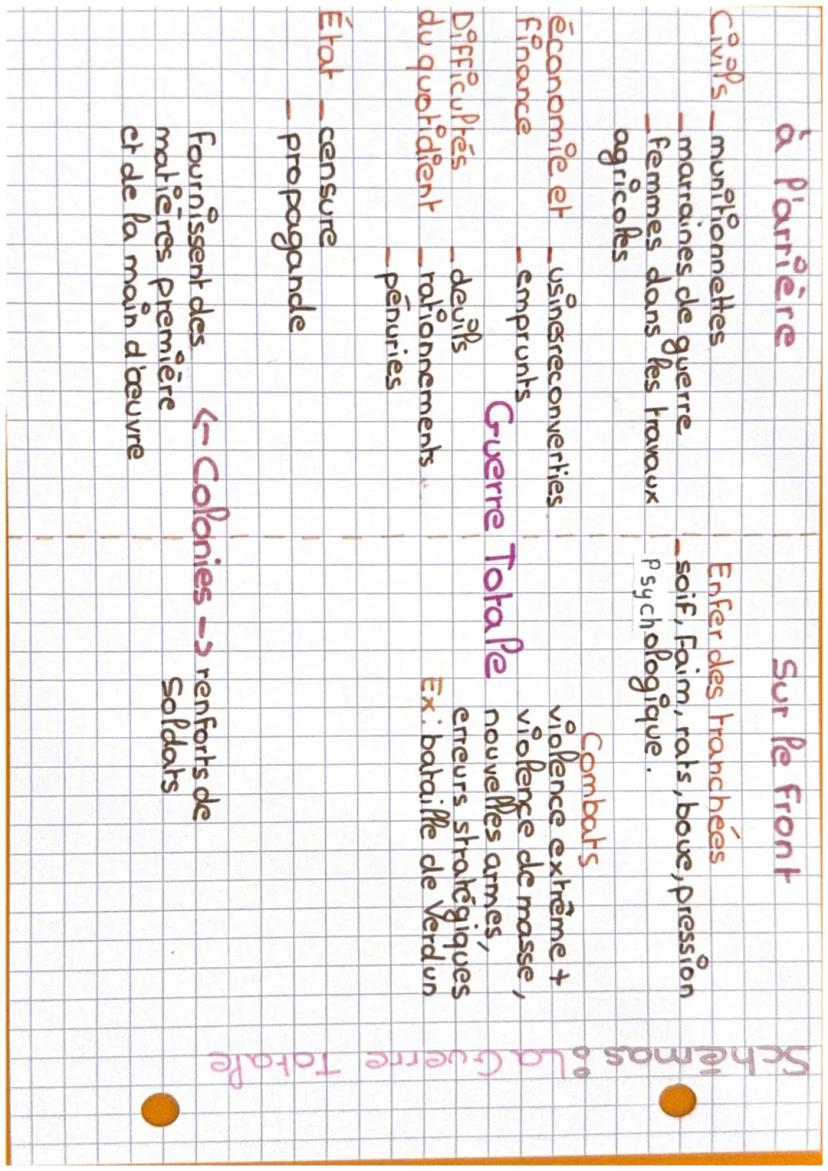 Schémas : La Guerre Totale
à l'arrière
Civils - munitionnettes
- marraines de guerre
- femmes dans les travaux
agricoles
économie et - usines reconverties
finance - emprunts
Difficultés - deuils
du quotidient - rationnements
- pénuries
État - censure
- propagande
Guerre Totale
Sur le front
Enfer des tranchées
- soif, faim, rats, boue, pression
Psychologique.
Combats
violence extrême +
violence de masse,
nouvelles armes,
erreurs stratégiques
Ex : bataille de Verdun
<- Colonies ->
fournissent des
matières première
et de la main d'œuvre
renforts de
soldats